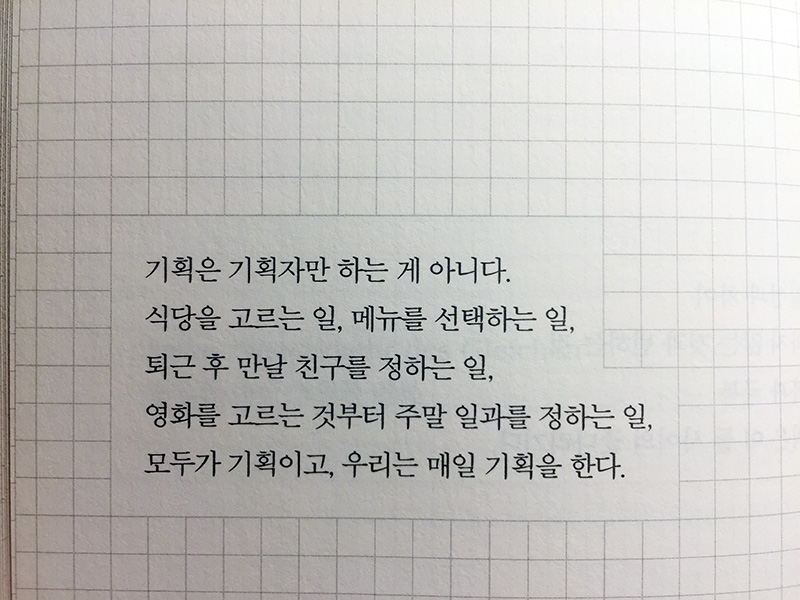 기획은 기획자만 하는 게 아니다.
식당을 고르는 일, 메뉴를 선택하는 일,
퇴근 후 만날 친구를 정하는 일,
영화를 고르는 것부터 주말 일과를 정하는 일,
모두가 기획이고, 우리는 매일 기획을 한다.